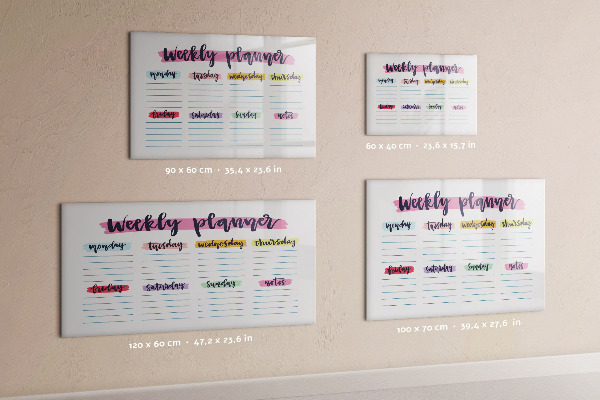 Weekly planner
monday tuesday wednesday thursday
friday saturday sunday notes
90 x 60 cm · 35,4 x 23,6 in
Weekly planner
monday tuesday wednesday thursday
friday saturday sunday notes
60 x 40 cm · 23,6 x 15,7 in
Weekly planner
monday tuesday wednesday thursday
friday saturday sunday notes
120 x 60 cm · 47,2 x 23,6 in
Weekly planner
monday tuesday wednesday thursday
friday saturday sunday notes
100 x 70 cm · 39,4 x 27,6 in